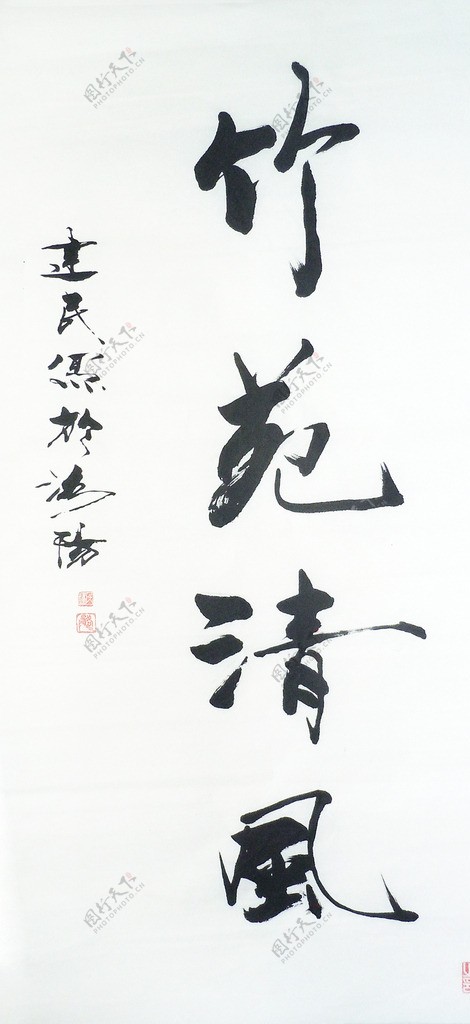 竹苑清風
建民於陽
图行天下
PHOTOPHOTO.CN
图行天下
PHOTOPHOTO.CN
图行天下
PHOTOPHOTO.CN
图行天下
PHOTOPHOTO.CN
图行天下
PHOTOPHOTO.CN
图行天下
PHOTOPHOTO.CN
图行天下
PHOTOPHOTO.CN
图行天下
PHOTOPHOTO.CN